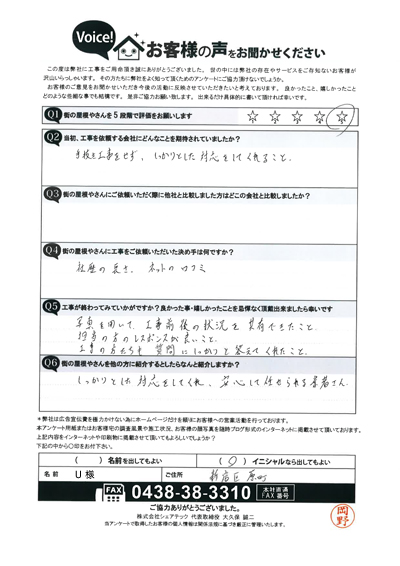 Voice!
お客様の声をお聞かせください
この度は弊社に工事をご用命頂き誠にありがとうございました。世の中には弊社の存在やサービスをご存知ないお客様が
沢山いらっしゃいます。その方たちに弊社をよく知って頂くためのアンケートにご協力頂けないでしょうか。
お客様のご意見をお聞かせいただき今後の活動に反映させていただきたいと考えております。良かったこと、嬉しかったこと
どのような些細な事でも結構です。是非ご協力お願い致します。出来るだけ具体的に書いて頂ければ幸いです。
Q1 街の屋根やさんを5段階で評価をお願いします ☆ ☆ ☆ ☆ ☆
Q2 当初、工事を依頼する会社にどんなことを期待されていましたか?
手抜き工事をせず、しっかりとした対応をしてくれること。
Q3 街の屋根やさんにご依頼いただく際に他社と比較しました方はどこの会社と比較しましたか?
Q4 街の屋根やさんに工事をご依頼いただいた決め手は何ですか?
社歴の長さ、ネットの口コミ
Q5 工事が終わってみていかがですか?良かった事・嬉しかったことを忌憚なく頂戴出来ましたら幸いです
写真を用いて、工事前後の状況を共有できたこと。
担当の方のレスポンスが良いこと。
工事の方たちも質問にしっかりと答えてくれたこと。
Q6 街の屋根やさんを他の方に紹介するとしたらなんと紹介しますか?
しっかりとした対応をしてくれ、安心して任せられる業者さん。
＊弊社は広告宣伝費を極力かけない為にホームページだけを頼りにお客様への営業活動を行っております。
本アンケート用紙またはお客様邸での調査風景や施工状況、お客様の顔写真を随時ブログ形式のインターネットに掲載させて頂いております。
上記内容をインターネットや印刷物に掲載させて頂いてもよろしいでしょうか?
下記の中から〇印をお付下さい。
( )名前を出してもよい (○)イニシャルなら出してもよい
名前 U様 ご住所
FAX 0438-38-3310 本社直通 FAX番号
ご協力ありがとうございました。
株式会社シェアテック 代表取締役 大久保 誠二
当アンケートで取得したお客様の個人情報は関係法規に基づき厳正に管理いたします。
岡野